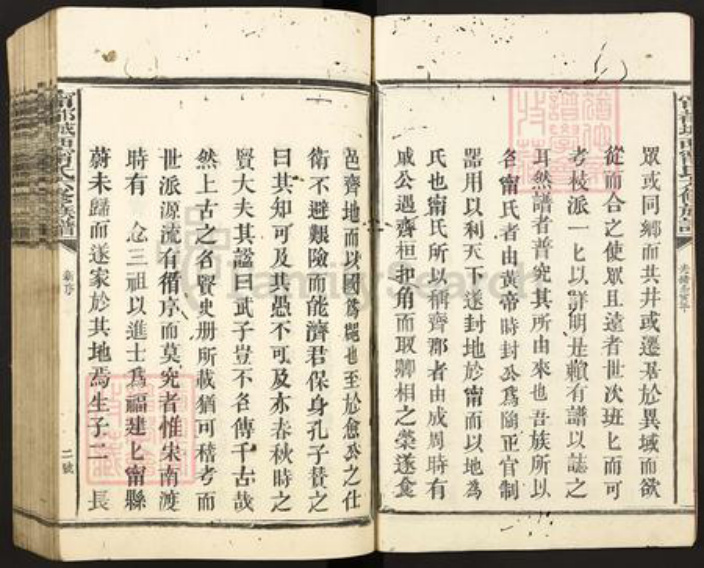 眾或同鄉而共井或遷居於異域而欲
從而合之使眾且遠者世次班匕而可
考枝派一匕以詳明是賴有譜以誌之
耳然譜者普究其所由來也吾族所以
名甯氏者由黃帝時封公為陶正官制
器用以利天下遂封地於甯而以地為
氏也甯氏所以稱齊郡者由成周時有
戚公遇齊桓扣角而取卿相之榮遂食
邑齊地而以國為氏也至於愈公之仕
衛不避艱險而能濟君保身孔子贊之
曰其知可及其愚不可及亦春秋時之
賢大夫其謚曰武子豈不名傳千古哉
然上古之名賢史册所載猶可稽考而
世派源流有循序而莫究者惟宋南渡
時有 念三祖以進士為福建匕甯縣
蔚未歸而遂家於其地焉生子二 長
新序
二號
FamilySearch